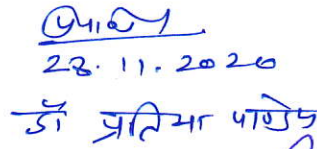 23.11.2020
डॉ प्रतिभा पाण्डेय